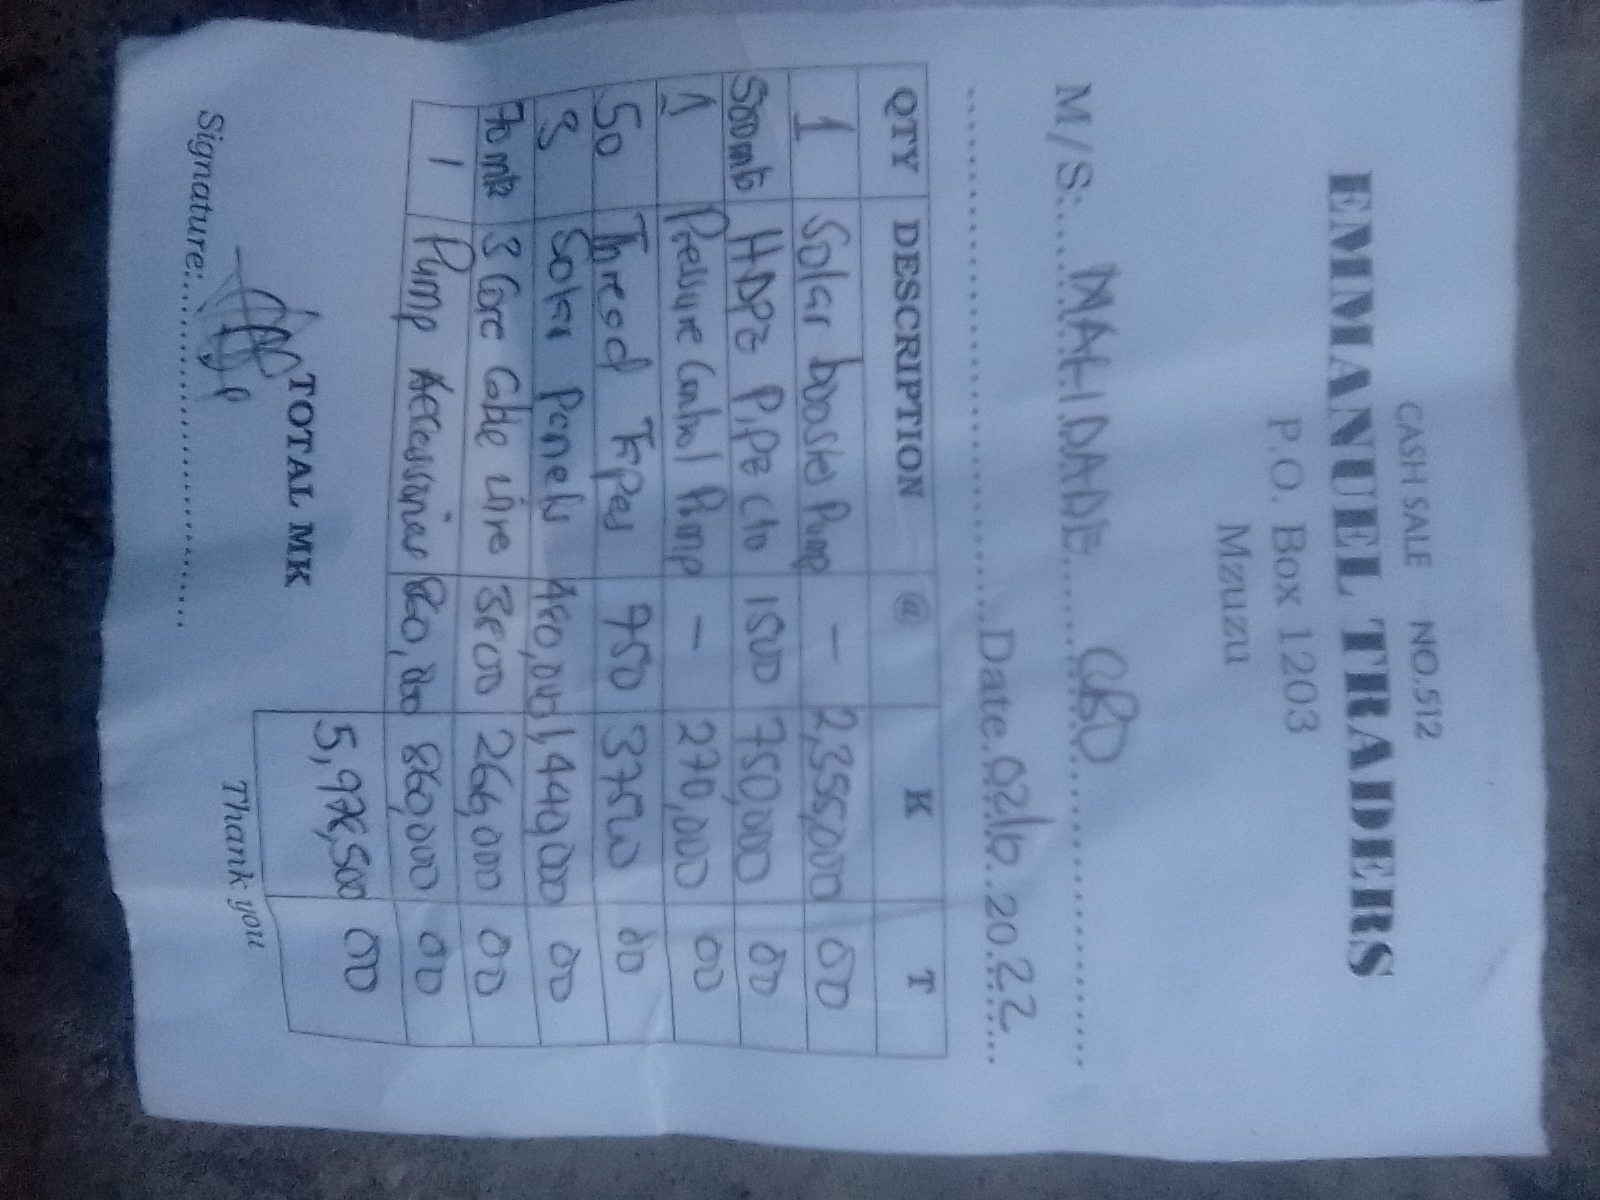 CASH SALE NO.512
EMMANUEL TRADERS
P.O. Box 1203
Mzuzu
M/S: MALIDADE CBO
Date 02/6 2022
QTY DESCRIPTION @ K T
1 Solar booster Pump - 2,355,000 00
500mts HDPE PIPE C10 1500 750,000 00
1 Pressure Control Pump - 270,000 00
50 Thread Tapes 750 37500 00
3 Solar Panels 480,000 1,440,000 00
70 mts 3 Core Cable wire 3800 266,000 00
1 Pump Accessories 860,000 860,000 00
TOTAL MK 5,978,500 00
Signature:
Thank you